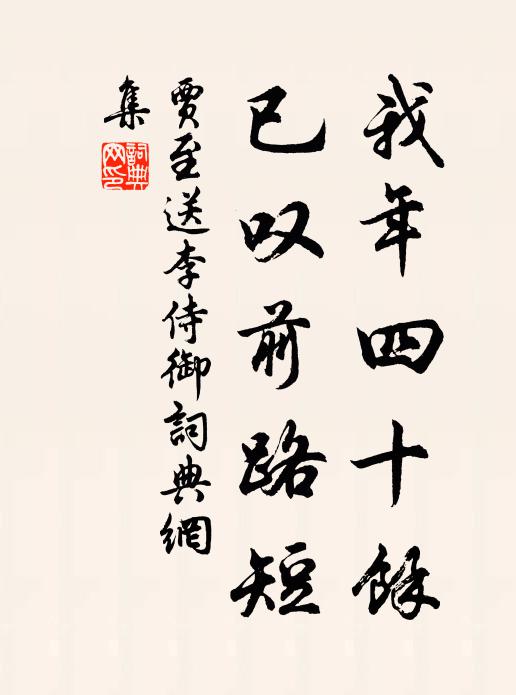 我年四十餘
已叹前路短
賈至送李侍御詞典網
集
詞典
网印